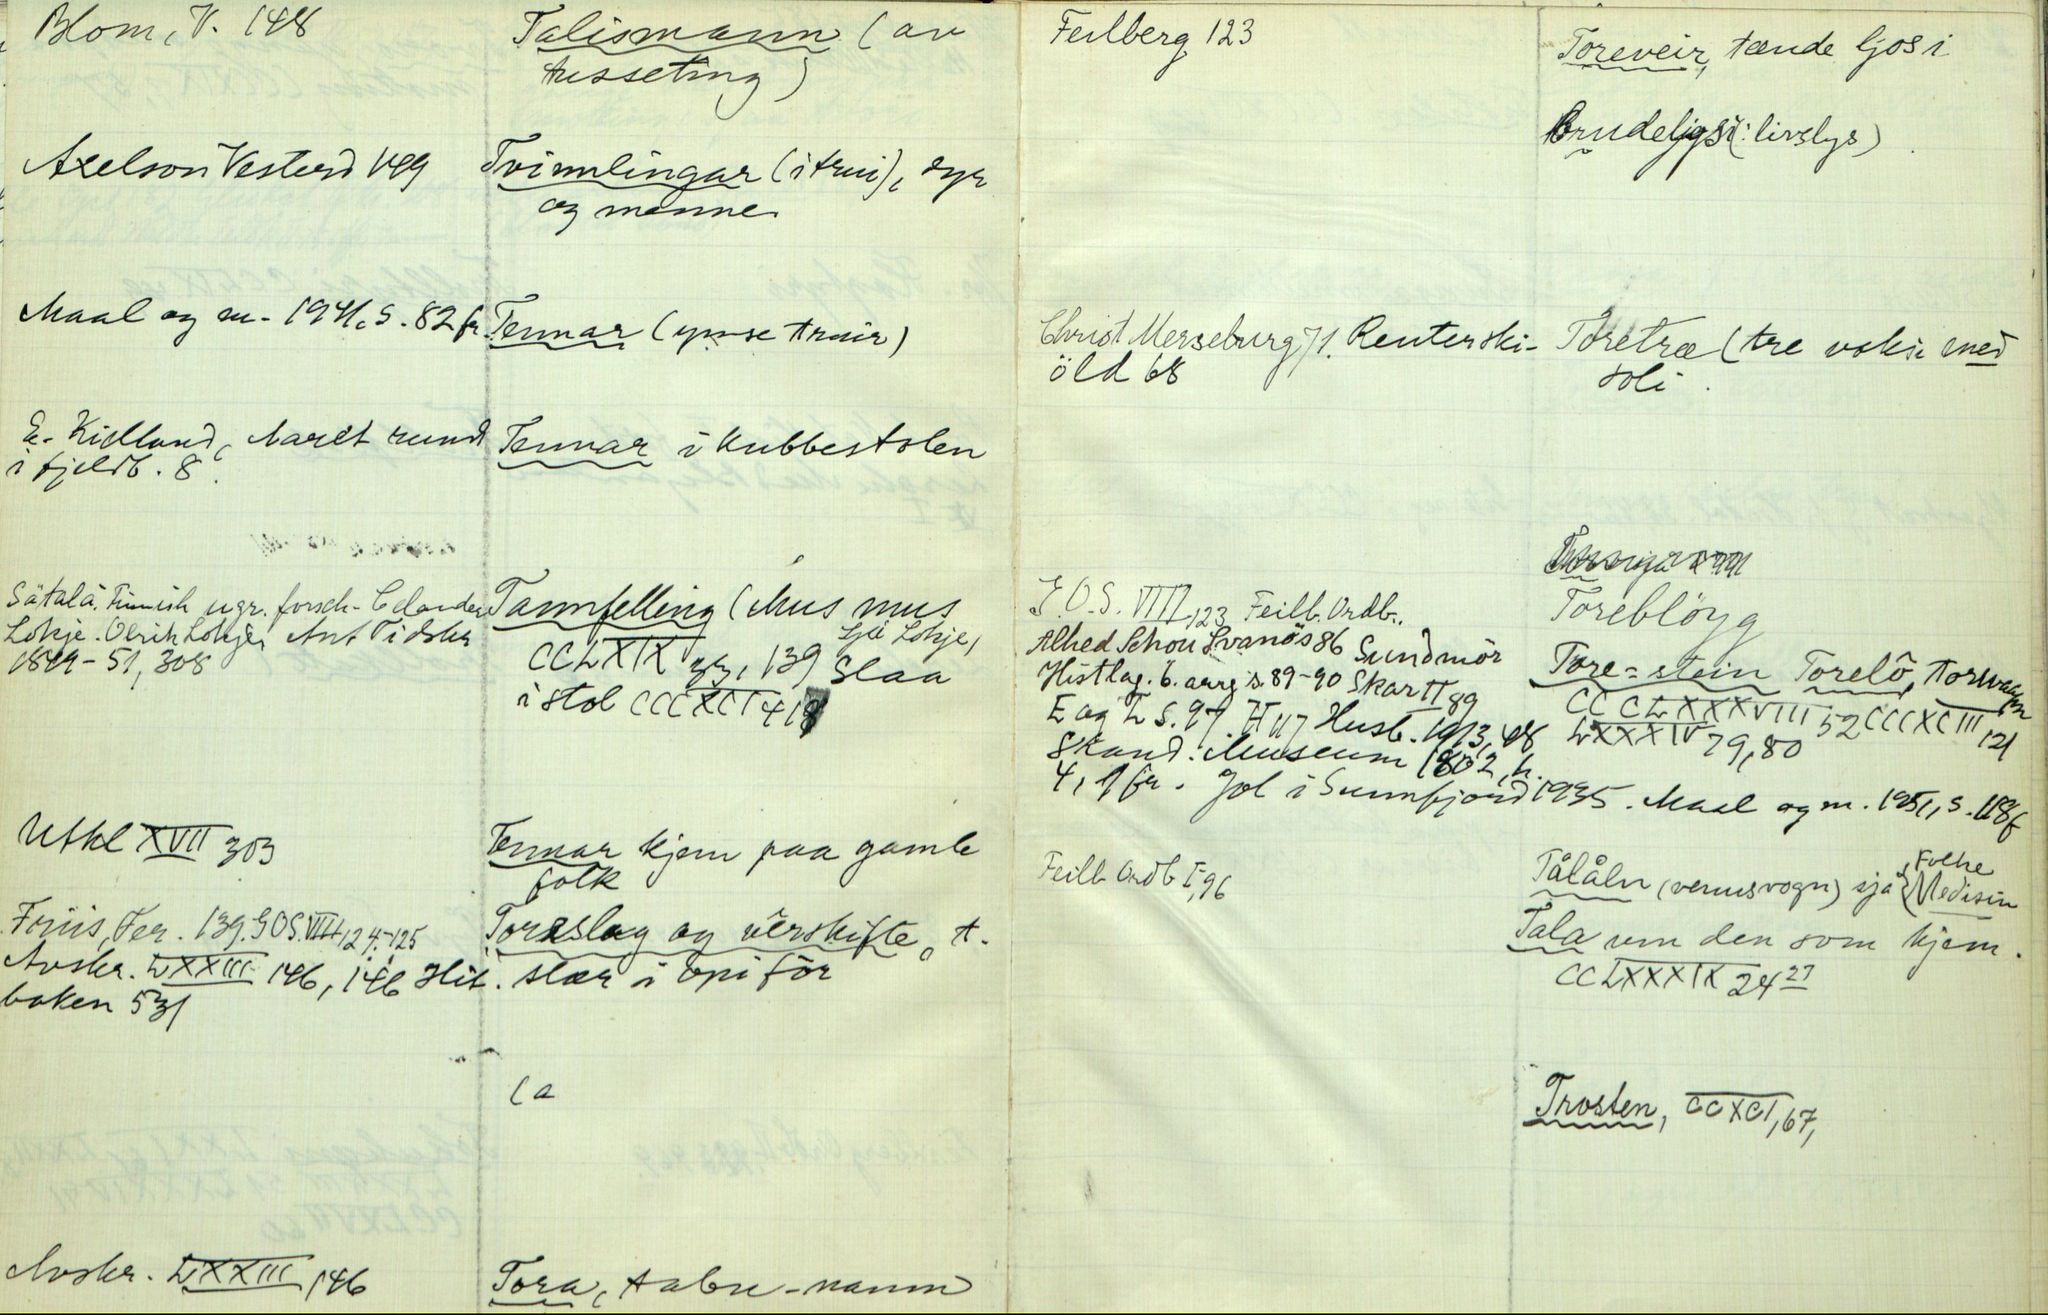 Blom, V. 148
Talismann (av
tusseting)
Axelson Vesterd 149
Tvinnlingar (i trui), dyr
og menne
Maal og m. 1941, S. 82 fr.
Tennar (ymse truir)
E. Kidland, Aaret rundt
i fjeldb. 8.
Tennar i kubbestolen
Sätalä, Finnish ugr. forsch. Celander
Lokje. Olrik Lokje, Ant Tidskr
1849-51, 308
Tannfelling (Mus mus
sjå Lokje,
CCLXIX 33, 139 Slaa
i stol CCCXCI 418
Utkl XVII 303
Tennar kjem paa gamle
folk
Friis, Fer. 139. GOS. VIII 124-125
Avskr. LXXIII 146, 146 Hit.
boken 531
Toreslag og vêrskifte, t.
slær i opi för
(a
Avskr. LXXIII 146
Tora, tabu-namn
Feilberg 123
Toreveir, tænde ljos i
Brudeljosi (: livslys)
Christ Merseburg 71. Reuterski-
öld 68
Toretræ (tre vokse med
soli.
Toreblöyg
G.O.S. VIII, 123 Feilb. Ordb.,
Alhed Schou Svanös 86 Sundmör
Histlag. 6. aarg s. 89-90 Skar II 89
E og L S. 97 H 117 Husb. 1913, 48
Skand. Museum 1802, h.
4, 1 fr. Jol i Sunnfjord 1935. Maal og m. 1951, s. 118 f
Tore-stein Torelô, torvaagn
CCCLXXXVIII 52 CCCXCIII 121
LXXXIV 79, 80
Feilb Ordb I, 96
Tålåln (venusvogn) sjå Folke
Medisin
Tala um den som kjem.
CCLXXXIX 24 27
Trosten, CCXCI, 67,